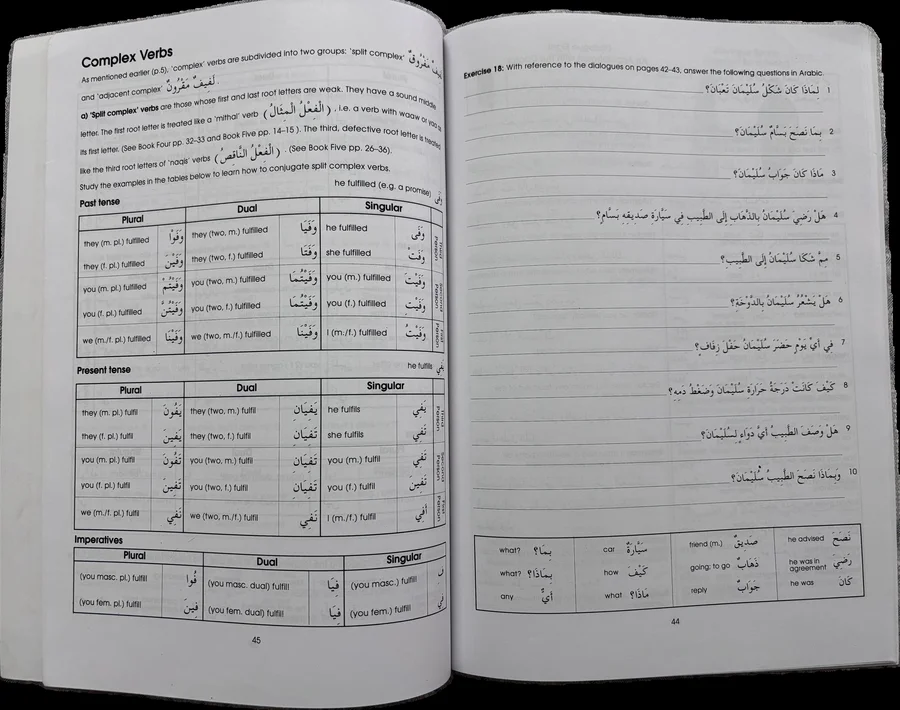 Exercise 18: With reference to the dialogues on pages 42-43, answer the following questions in Arabic.
1 لِمَاذَا كَانَ شَكْلُ سُلَيْمَانَ تَعْبَانَ؟
2 بِمَا نَصَحَ بَسَّامٌ سُلَيْمَانَ؟
3 مَاذَا كَانَ جَوَابُ سُلَيْمَانَ؟
4 هَلْ رَضِيَ سُلَيْمَانُ بِالذَّهَابِ إِلَى الطَّبِيبِ فِي سَيَّارَةِ صَدِيقِهِ بَسَّامٍ؟
5 مِمَّ شَكَا سُلَيْمَانُ إِلَى الطَّبِيبِ؟
6 هَلْ يَشْعُرُ سُلَيْمَانُ بِالدَّوْخَةِ؟
7 فِي أَيِّ يَوْمٍ حَضَرَ سُلَيْمَانُ حَفْلَ زَفَافٍ؟
8 كَيْفَ كَانَتْ دَرَجَةُ حَرَارَةِ سُلَيْمَانَ وَضَغْطُ دَمِهِ؟
9 هَلْ وَصَفَ الطَّبِيبُ أَيَّ دَوَاءٍ لِسُلَيْمَانَ؟
10 وَبِمَاذَا نَصَحَ الطَّبِيبُ سُلَيْمَانَ؟
what? بِمَا؟ car سَيَّارَةٌ friend (m.) صَدِيقٌ he advised نَصَحَ
what? بِمَاذَا؟ how كَيْفَ going; to go ذَهَابٌ he was in agreement رَضِيَ
any أَيٌّ what مَاذَا؟ reply جَوَابٌ he was كَانَ
44
Complex Verbs
As mentioned earlier (p.5), 'complex' verbs are subdivided into two groups: 'split complex' لَفِيفٌ مَفْرُوقٌ
and 'adjacent complex' لَفِيفٌ مَقْرُونٌ .
a) 'Split complex' verbs are those whose first and last root letters are weak. They have a sound middle
letter. The first root letter is treated like a 'mithal' verb (الْفِعْلُ الْمِثَالُ) , i.e. a verb with waaw or yaa as
its first letter. (See Book Four pp. 32–33 and Book Five pp. 14–15 ). The third, defective root letter is treated
like the third root letters of 'naqis' verbs (الْفِعْلُ النَّاقِصُ) . (See Book Five pp. 26–36).
Study the examples in the tables below to learn how to conjugate split complex verbs.
Past tense he fulfilled (e.g. a promise) وَفَى
Plural Dual Singular
they (m. pl.) fulfilled وَفَوْا they (two, m.) fulfilled وَفَيَا he fulfilled وَفَى Third Person
they (f. pl.) fulfilled وَفَيْنَ they (two, f.) fulfilled وَفَتَا she fulfilled وَفَتْ
you (m. pl.) fulfilled وَفَيْتُمْ you (two, m.) fulfilled وَفَيْتُمَا you (m.) fulfilled وَفَيْتَ Second Person
you (f. pl.) fulfilled وَفَيْتُنَّ you (two, f.) fulfilled وَفَيْتُمَا you (f.) fulfilled وَفَيْتِ
we (m./f. pl.) fulfilled وَفَيْنَا we (two, m./f.) fulfilled وَفَيْنَا I (m./f.) fulfilled وَفَيْتُ First Person
Present tense he fulfils يَفِي
Plural Dual Singular
they (m. pl.) fulfil يَفُونَ they (two, m.) fulfil يَفِيَانِ he fulfils يَفِي Third Person
they (f. pl.) fulfil يَفِينَ they (two, f.) fulfil تَفِيَانِ she fulfils تَفِي
you (m. pl.) fulfil تَفُونَ you (two, m.) fulfil تَفِيَانِ you (m.) fulfil تَفِي Second Person
you (f. pl.) fulfil تَفِينَ you (two, f.) fulfil تَفِيَانِ you (f.) fulfil تَفِينَ
we (m./f. pl.) fulfil نَفِي we (two, m./f.) fulfil نَفِي I (m./f.) fulfil أَفِي First Person
Imperatives
Plural Dual Singular
(you masc. pl.) fulfil! فُوا (you masc. dual) fulfil! فِيَا (you masc.) fulfil! فِ
(you fem. pl.) fulfil! فِينَ (you fem. dual) fulfil! فِيَا (you fem.) fulfil! فِي
45